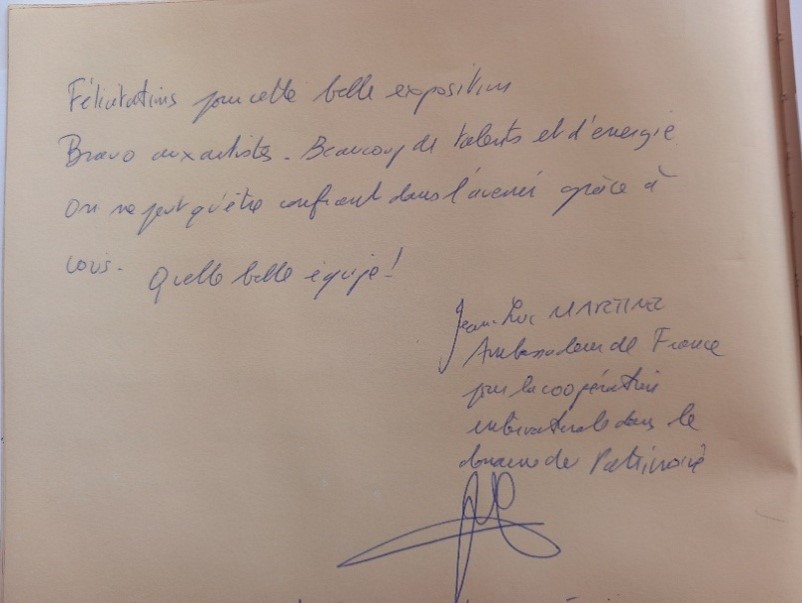 Félicitations pour cette belle exposition
Bravo aux artistes. Beaucoup de talents et d'énergie
On ne peut qu'être confiant dans l'avenir grâce à
vous. Quelle belle équipe!
Jean-Luc MARTINEZ
Ambassadeur de France
pour la coopération
internationale dans le
domaine du Patrimoine